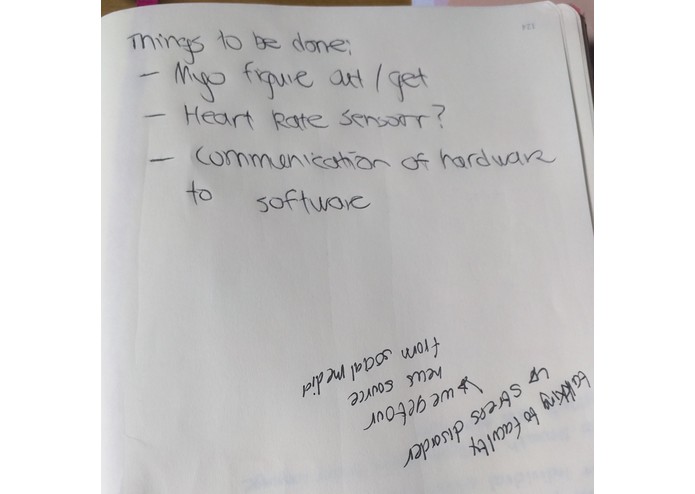 Things to be done:
- Myo figure out / get
- Heart Rate Sensorr?
- Communication of hardware
to software
talking to faculty
↳ stress disorder
↳ we get our
news source
from social media
124